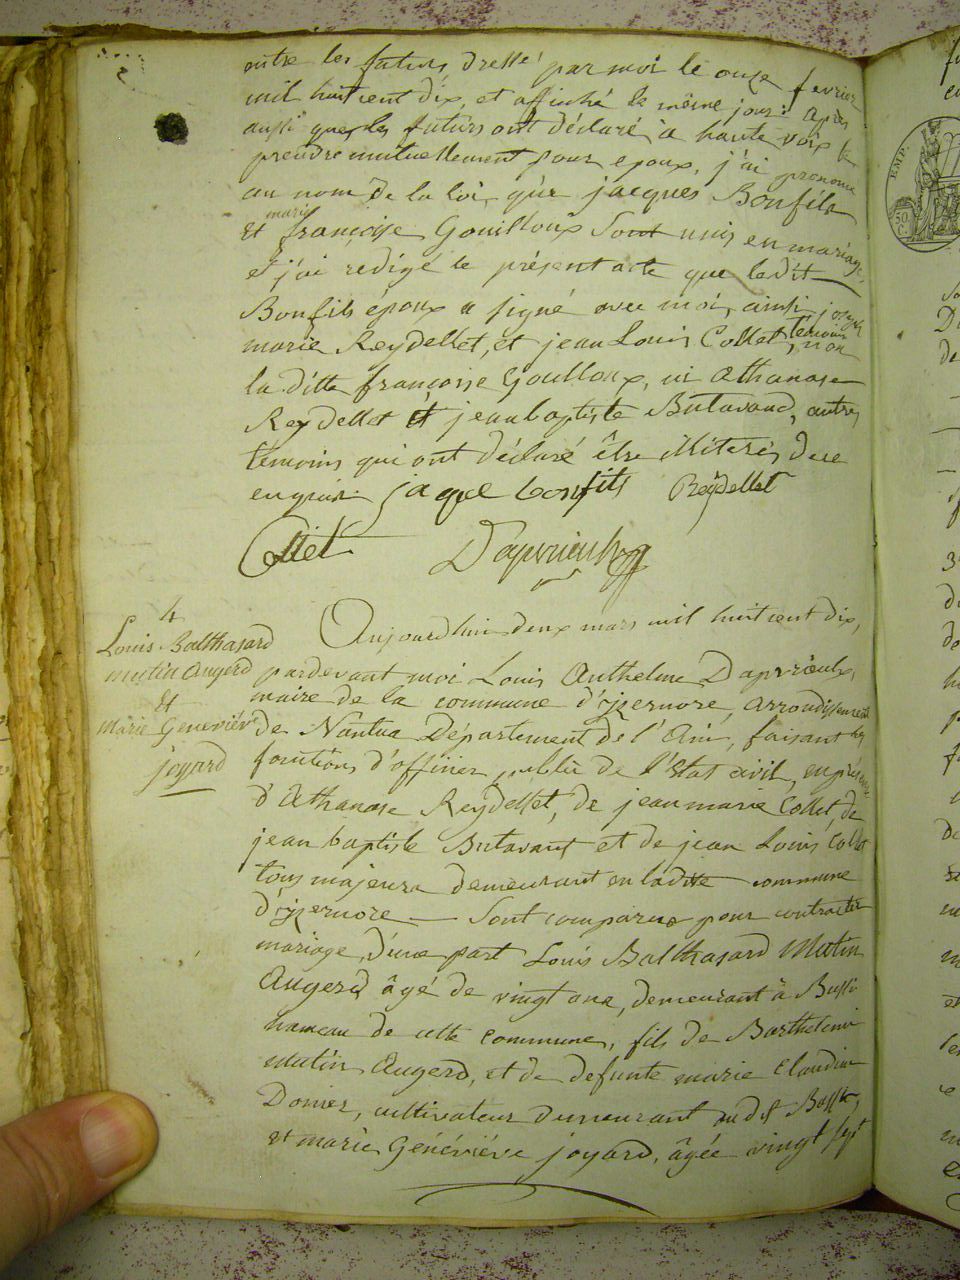 entre les futurs, dressé par moi le onze fevrier
mil huit cent dix, et affiché le même jour: après
aussi que les futurs ont déclaré à haute voix se
prendre mutuellement pour epoux, j'ai prononcé
au nom de la loi, que jacques Bonfils
marie
et françoise Gouilloux sont unis en mariage,
et j'ai redigé le présent acte que ledit
Bonfils époux a signé avec moi, ainsi joseph
marie Reydellet, et jean Louis Collet, témoins, non
la ditte françoise Goulloux, ni Athanase
Reydellet et jean baptiste Butavand, autres
témoins qui ont déclaré être illiterés de ce
enquis. jaque bonfils Reydellet
Collet Dapvrieulx
4
Louis Balthasard
mutin Augerd
et
Marie Geneviéve
joyard
Aujourdhui deux mars mil huit cent dix,
pardevant moi Louis Anthelme Dapvrieulx,
maire de la commune d'izernore, arrondissement
de Nantua Département de l'Ain, faisant les
fonctions d'officier public de l'Etat civil, en présence
d'Athanase Reydellet, de jean marie Collet, de
jean baptiste Butavant et de jean Louis Collet
tous majeurs demeurant en ladite commune
d'izernore — Sont comparus pour contracter
mariage, d'une part Louis Balthasard Mutin
Augerd âgé de vingt ans, demeurant à Bussi
hameau de cette commune, fils de Barthelemi
mutin Augerd, et de defunte marie Claudine
Donier, cultivateur demeurant audit Bussi,
et marie Généviéve joyard, âgée vingt sept
EMP.
50.
C.